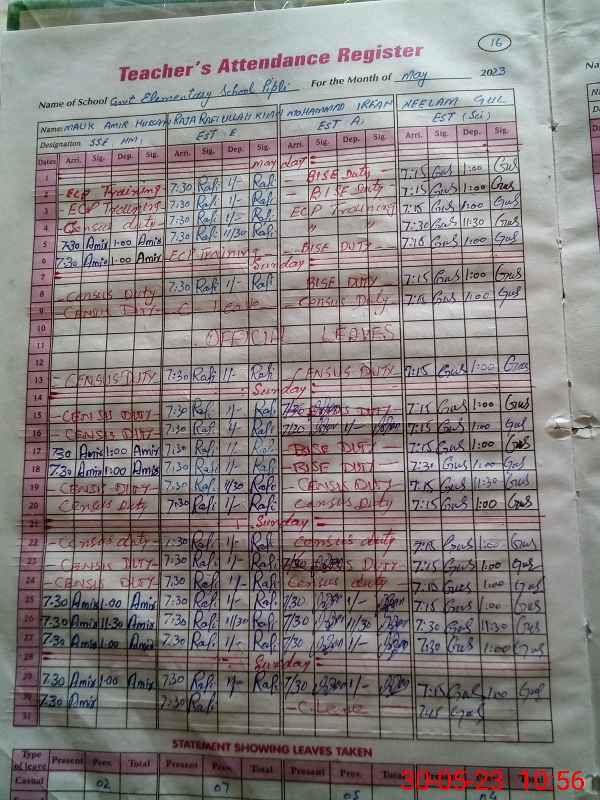 16
Teacher's Attendance Register
Name of School Govt Elementary School Pipli For the Month of May 2023
Name: MALIK AMIR HUSSAIN RAJA RAFIULLAH KHAN MOHAMMAD IRFAN NEELAM GUL
Designation SSE HM, EST E EST A, EST (Sci)
Dates Arri. Sig. Dep. Sig. Arri. Sig. Dep. Sig. Arri. Sig. Dep. Sig. Arri. Sig. Dep. Sig.
1 may day
2 ECP Training 7:30 Rafi 1/- Rafi - BISE Duty - 7:15 Gul 1:00 Gul
3 ECP Training 7:30 Rafi 1/- Rafi - BISE Duty 7:15 Gul 1:00 Gul
4 Census duty 7:30 Rafi 1/- Rafi ECP Training 7:15 Gul 1:00 Gul
5 7:30 Amir 1:00 Amir 7:30 Rafi 11/30 Rafi " " 7:30 Gul 11:30 Gul
6 7:30 Amir 1:00 Amir ECP Training - BISE DUTY - 7:15 Gul 1:00 Gul
7 Sunday
8 - Census Duty 7:30 Rafi 1/- Rafi BISE DUTY 7:15 Gul 1:00 Gul
9 - CENSUS DUTY - C Leave - Census Duty 7:15 Gul 1:00 Gul
10
11 OFFICIAL LEAVES
12
13 - CENSUS DUTY 7:30 Rafi 1/- Rafi - CENSUS DUTY 7:15 Gul 1:00 Gul
14 Sunday
15 - CENSUS DUTY 7:30 Rafi 1/- Rafi 7/30 DUTY 7:15 Gul 1:00 Gul
16 - CENSUS DUTY - 7:30 Rafi 1/- Rafi 7/30 1/- 7:15 Gul 1:00 Gul
17 7:30 Amir 1:00 Amir 7:30 Rafi 1/- Rafi - BISE DUTY - 7:15 Gul 1:00 Gul
18 7:30 Amir 1:00 Amir 7:30 Rafi 1/- Rafi - BISE DUTY - 7:30 Gul 1:00 Gul
19 - CENSUS DUTY - 7:30 Rafi 11/30 Rafi - CENSUS DUTY 7:15 Gul 11:30 Gul
20 Census Duty 7:30 Rafi 1/- Rafi Census Duty 7:15 Gul 1:00 Gul
21 Sunday
22 - Census duty - 7:30 Rafi 1/- Rafi Census duty 7:15 Gul 1:00 Gul
23 - CENSUS DUTY - 7:30 Rafi 1/- Rafi 7/30 DUTY 7:15 Gul 1:00 Gul
24 - CENSUS DUTY 7:30 Rafi 1/- Rafi Census duty 7:15 Gul 1:00 Gul
25 7:30 Amir 1:00 Amir 7:30 Rafi 1/- Rafi 7/30 1/- 7:15 Gul 1:00 Gul
26 7:30 Amir 11:30 Amir 7:30 Rafi 11/30 Rafi 7/30 11/30 7:30 Gul 11:30 Gul
27 7:30 Amir 1:00 Amir 7:30 Rafi 1/- Rafi 7/30 1/- 7:30 Gul 1:00 Gul
28 Sunday
29 7:30 Amir 1:00 Amir 7:30 Rafi 1/- Rafi 7/30 1/- 7:15 Gul 1:00 Gul
30 7:30 Amir 7:30 Rafi - C. Leave - 7:15 Gul
31
STATEMENT SHOWING LEAVES TAKEN
Type of leave Present Prev. Total Present Prev. Total Present Prev. Total
Casual 02 07 05 04
30-05-23 10:56